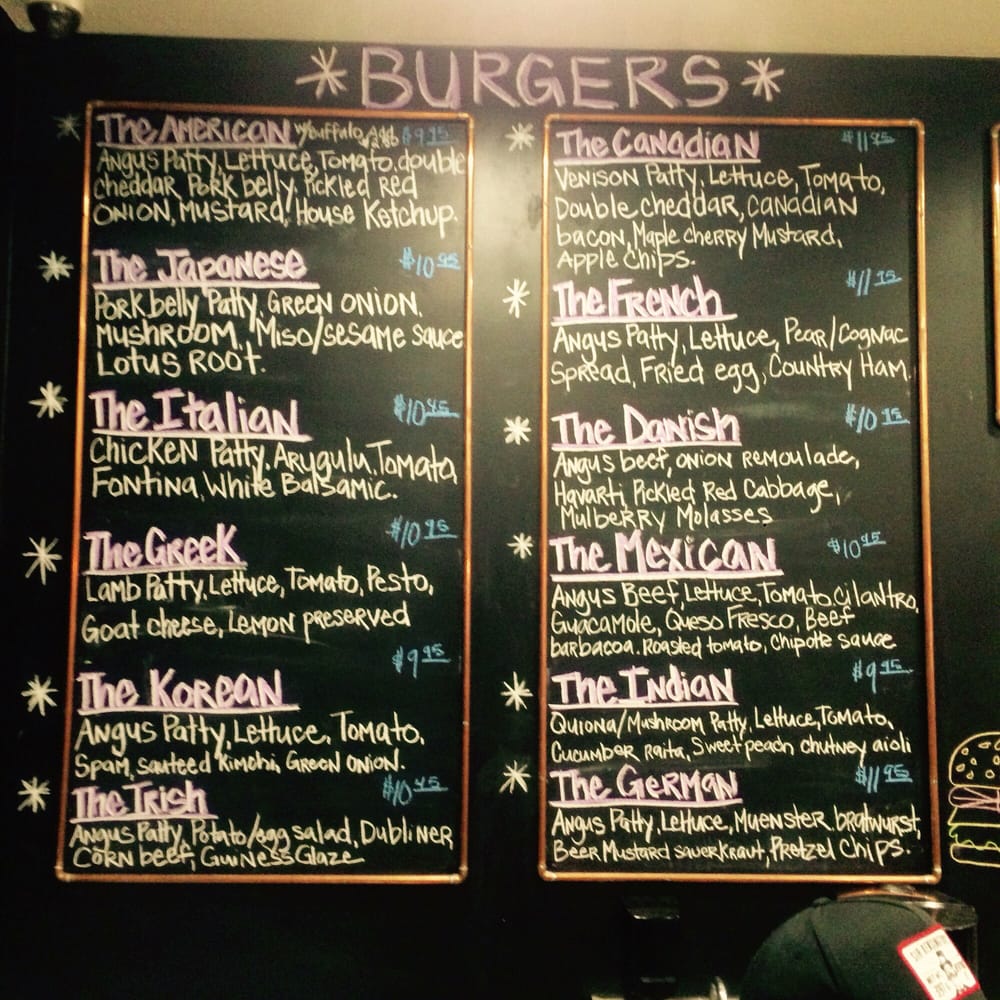 *BURGERS*
The American w/buffalo Add $9.95
Angus Patty, Lettuce, Tomato, double
cheddar, Pork belly, Pickled red
onion, Mustard, House Ketchup.
The Japanese $10.95
Pork belly Patty, Green onion,
Mushroom, Miso/sesame sauce
Lotus Root.
The Italian $10.45
Chicken Patty, Arygulu, Tomato,
Fontina, White Balsamic.
The Greek $10.95
Lamb Patty, Lettuce, Tomato, Pesto,
Goat cheese, Lemon preserved
The Korean $9.95
Angus Patty, Lettuce, Tomato,
Spam, sauteed kimchi, Green onion.
The Irish $10.45
Angus Patty, Potato/egg salad, Dubliner
Corn beef, Guiness Glaze
The Canadian $11.95
Venison Patty, Lettuce, Tomato,
Double cheddar, Canadian
bacon, Maple cherry Mustard,
Apple Chips.
The French $11.95
Angus Patty, Lettuce, Pear/Cognac
Spread, Fried egg, Country Ham.
The Danish $10.95
Angus beef, onion remoulade,
Havarti, Pickled Red Cabbage,
Mulberry Molasses
The Mexican $10.95
Angus Beef, Lettuce, Tomato, cilantro,
Guacamole, Queso Fresco, Beef
barbacoa. Roasted tomato, Chipotle sauce
The Indian $9.95
Quiona/Mushroom Patty, Lettuce, Tomato,
Cucumber raita, Sweet peach chutney aioli
The German $11.95
Angus Patty, Lettuce, Muenster, bratwurst,
Beer Mustard sauerkraut, Pretzel Chips.